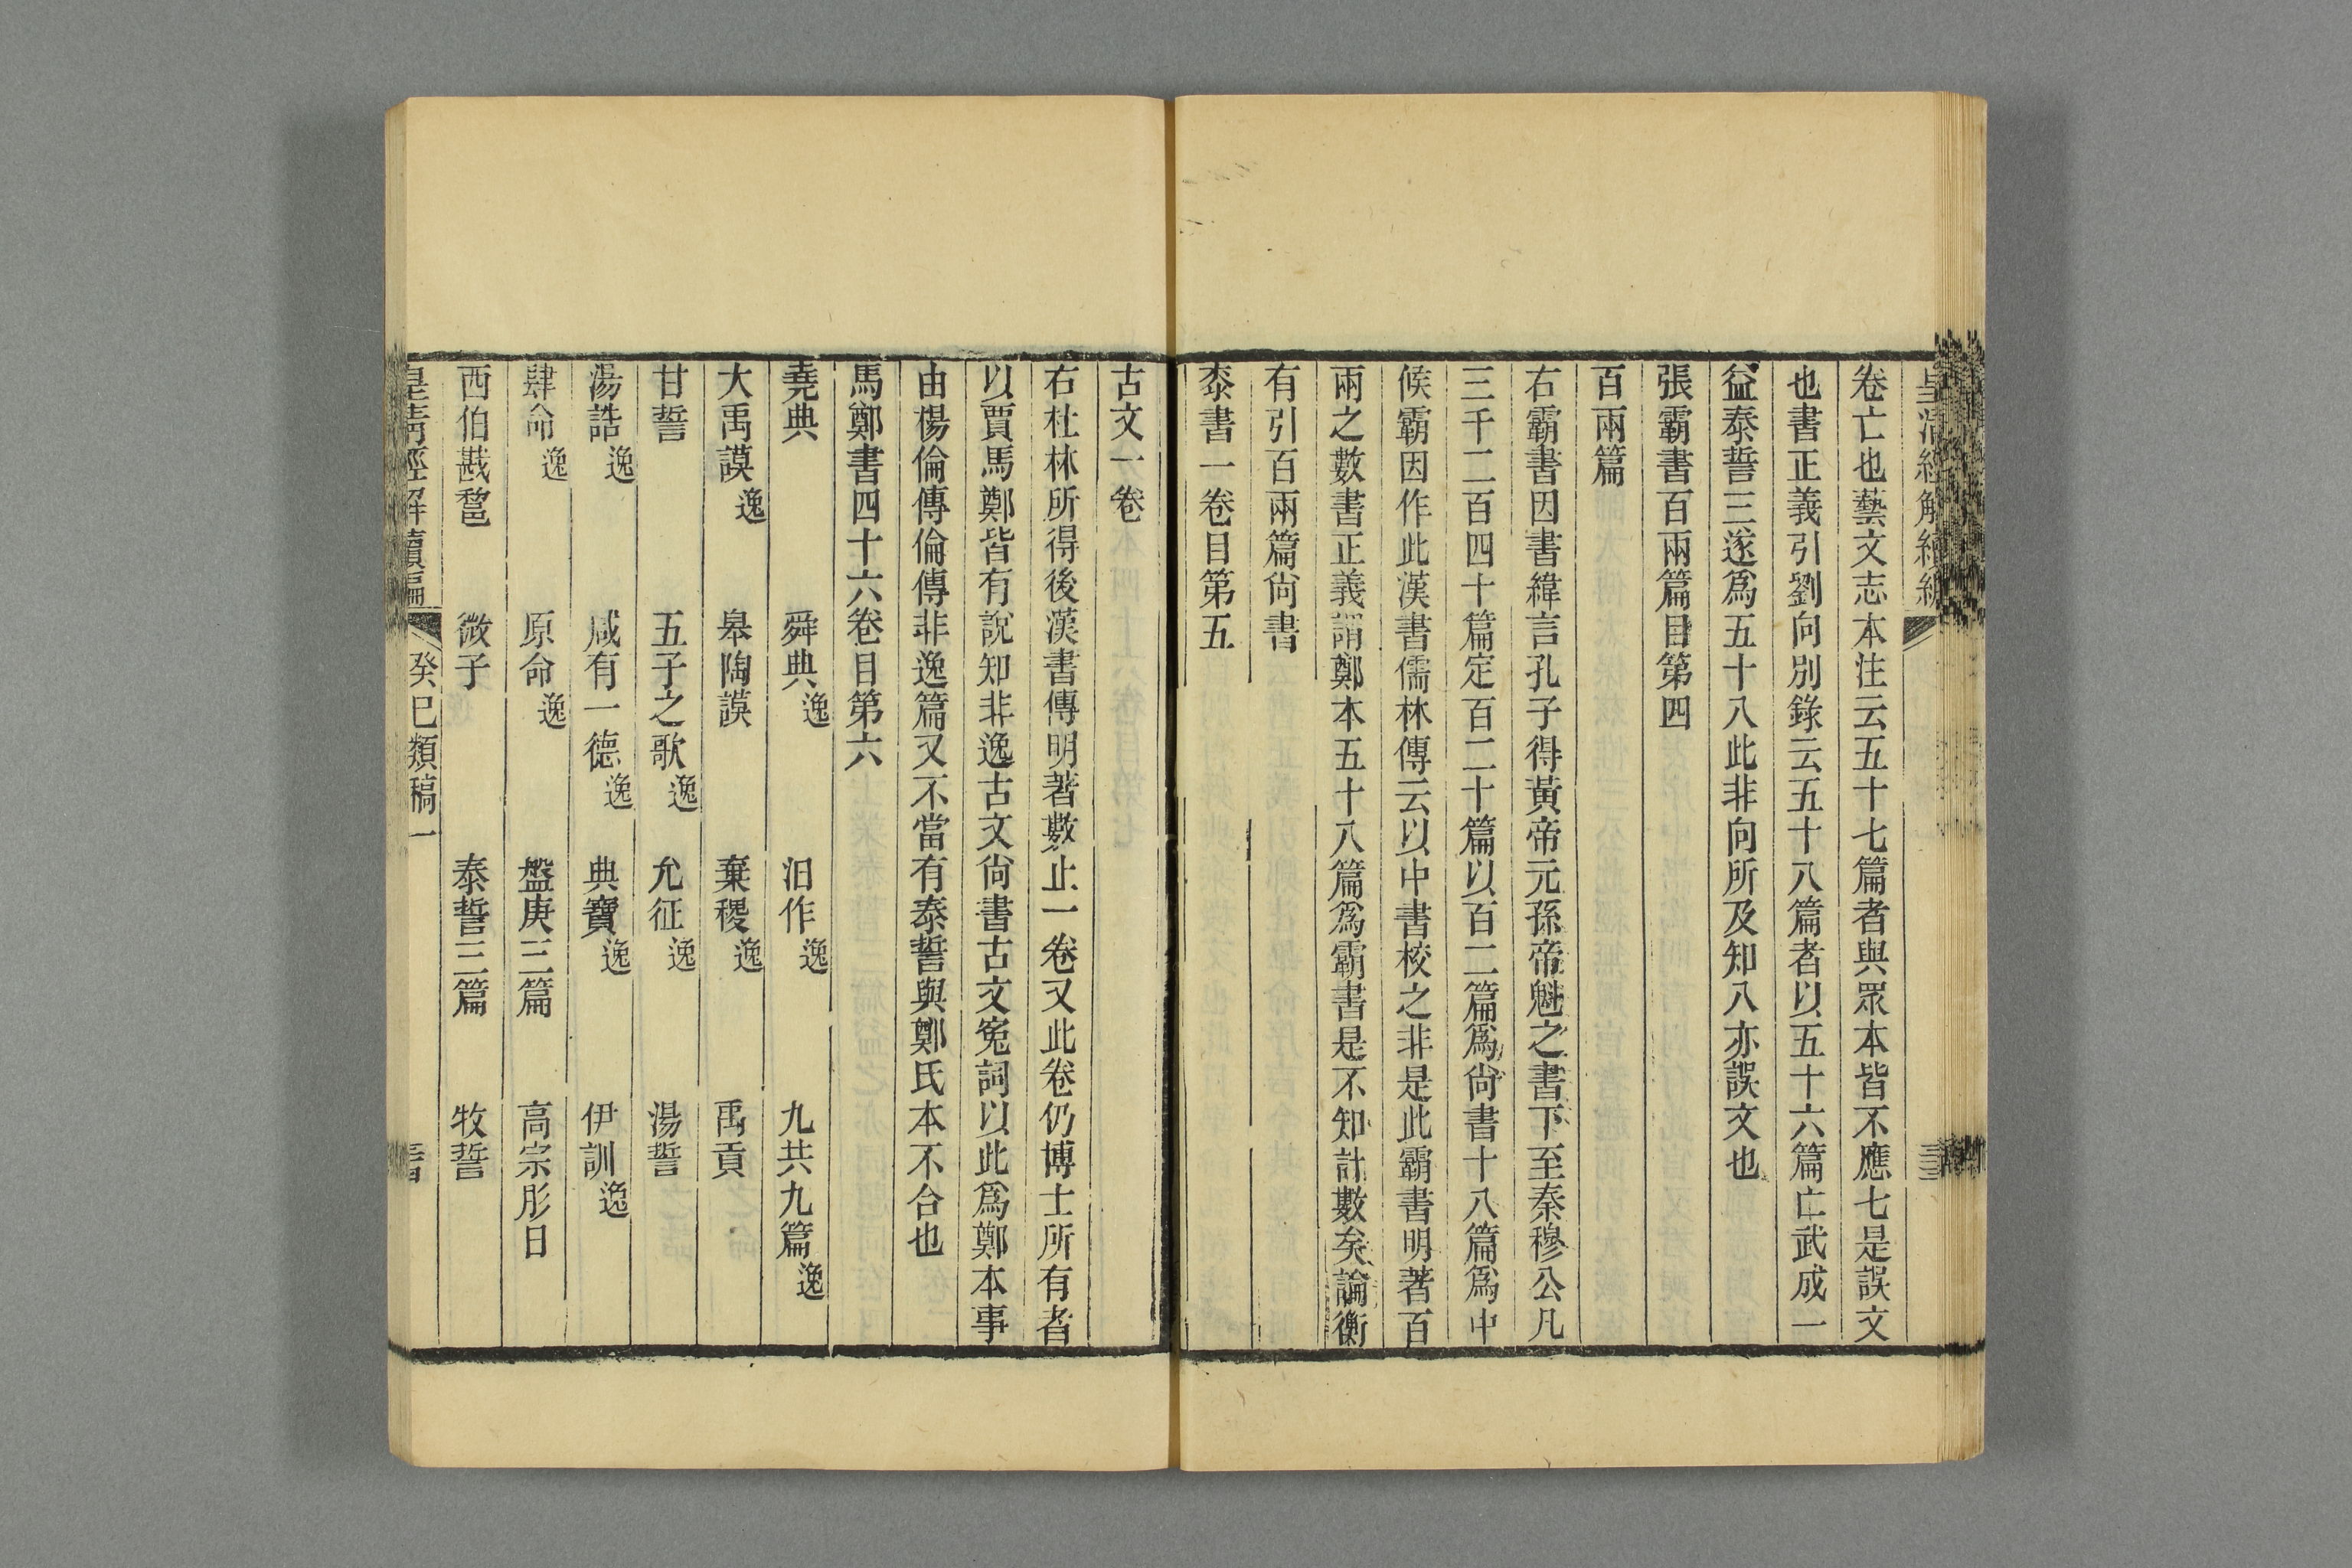 皇清經解續編
卷亡也藝文志本注云五十七篇者與眾本皆不應七是誤文
也書正義引劉向別錄云五十八篇者以五十六篇亡武成一
益泰誓三遂爲五十八此非向所及知八亦誤文也
張霸書百兩篇目第四
百兩篇
右霸書因書緯言孔子得黃帝元孫帝魁之書下至秦穆公凡
三千二百四十篇定百二十篇以百二篇爲尙書十八篇爲中
候霸因作此漢書儒林傳云以中書校之非是此霸書明著百
兩之數書正義謂鄭本五十八篇爲霸書是不知計數矣論衡
有引百兩篇尙書
桼書一卷目第五
古文一卷
右杜林所得後漢書傳明著數止一卷又此卷仍博士所有者
以賈馬鄭皆有說知非逸古文尙書古文冤詞以此爲鄭本事
由楊倫傳倫傳非逸篇又不當有泰誓與鄭氏本不合也
馬鄭書四十六卷目第六
堯典 舜典逸 汨作逸 九共九篇逸
大禹謨逸 皋陶謨 棄稷逸 禹貢
甘誓 五子之歌逸 允征逸 湯誓
湯誥逸 咸有一德逸 典寶逸 伊訓逸
肆命逸 原命逸 盤庚三篇 高宗肜日
西伯戡黎 微子 泰誓三篇 牧誓
皇淸經解續編 癸巳類稿一